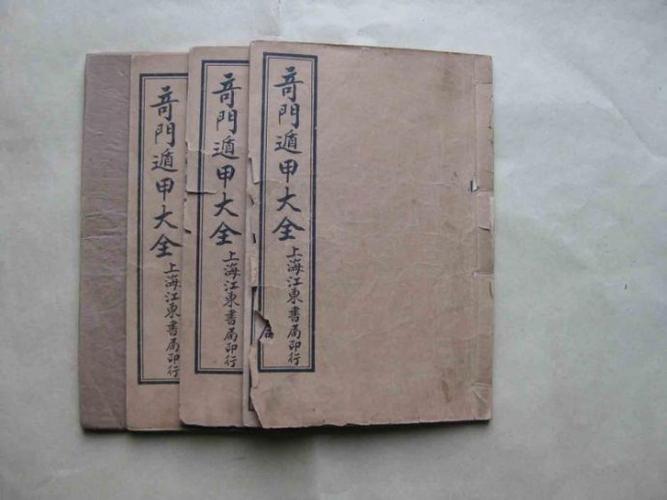 奇門遁甲大全
上海江東書局印行
奇門遁甲大全
上海江東書局印行
奇門遁甲大全
上海江東書局印行